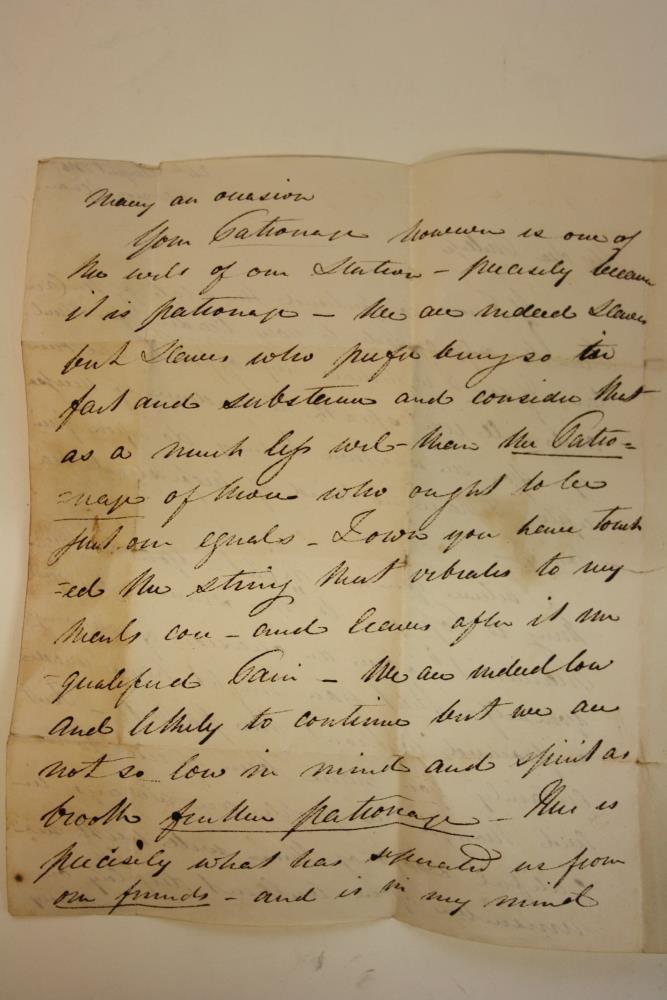 many an occasion
Your Patronage however is one of
the evils of our Station - precisely because
it is patronage - We are indeed Slaves
but Slaves who prefer being so in
fact and substance and consider that
as a much less evil - than the Patro=
=nage of those who ought to be
just our equals - I own you have touch
=ed the string that vibrates to my
hearts core - and leaves after it un
qualified Pain - We are indeed low
and likely to continue but we are
not so low in mind and spirit as
brook further patronage - This is
precisely what has separated us from
our friends - and is in my mind